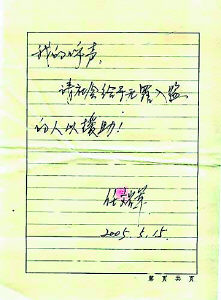 我的呼声，
请社会给予无罪入监
的人以援助！
任
2005.5.15.
第 页 共 页